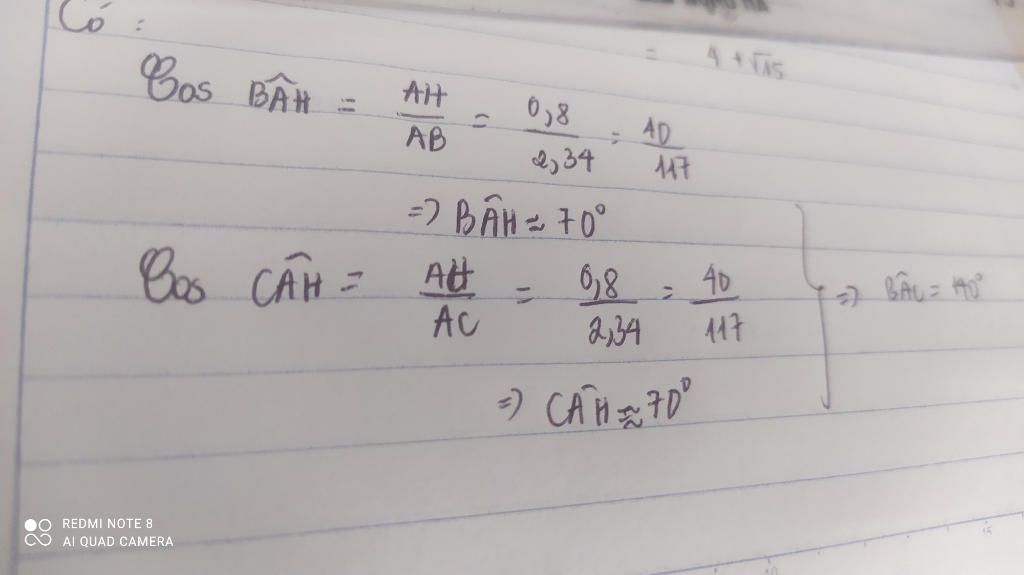 Có :
= 4 + √15
Cos BÂH = AH/AB = 0,8/2,34 = 40/117
=> BÂH ≈ 70°
Cos CÂH = AH/AC = 0,8/2,34 = 40/117
=> BÂC = 140°
=> CÂH ≈ 70°
REDMI NOTE 8
AI QUAD CAMERA